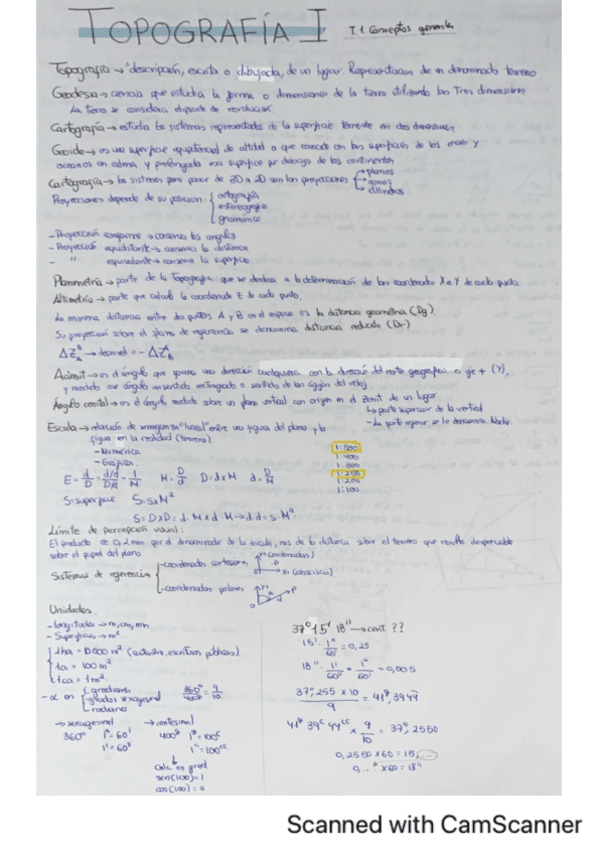 TOPOGRAFÍA I T.1 Conceptos generales
Topografía → descripción, escrita o dibujada, de un lugar. Representacion de un denominado terreno
Geodesia → ciencia que estudia la forma o dimensiones de la tierra utilizando las Tres dimensiones
La tierra se considera elipsoide de revolución.
Cartografía → estudia los sistemas representados de la superficie terrestre en dos dimensiones.
Geoide → es una superficie equipotencial de altitud 0 que coincide con las superficies de los mares y
oceanos en calma y prolongada esa superficie por debajo de los continentes
Cartografía → los sistemas para pasar de 3D a 2D son las proyecciones
planos
conos
cilindros
Proyecciones depende de su posicion:
ortografía
estereografía
gnomonica
- Proyección conforme → conserva los angulos
- Proyección equidistante → conserva la distancia
- " equivalente → conserva la superficie
Planimetría → parte de la Topografía que se dedica a la determinación de las coordenadas X e Y de cada punto.
Altimetría → parte que calcula la coordenada Z de cada punto.
La minima distancia entre dos puntos A y B en el espacio es la distancia geometrica (Dg).
Su proyeccion sobre el plano de referencia se denomina distancia reducida (Dr)
ΔZ → desnivel = - ΔZ
Acimut → es el ángulo que forma una dirección cualquiera con la dirección del norte geografico o eje + (Y),
y medido ese ángulo en sentido retrógrado o sentido de las agujas del reloj.
Ángulo cenital → es el ángulo medido sobre un plano vertical con origen en el Zenit de un lugar.
↳ parte superior de la vertical
- La parte inferior se le denomina Nadir.
Escala → relación de semejanza "lineal" entre una figura del plano y la
figura en la realidad (terreno)
- Numérica
- Gráfica
1:500
1:400
1:300
1:250
1:200
1:100
E = d/D = (d/d)/(D/d) = 1/N M = D/d D = d×M d = D/N
S = superficie S = s×M²
S = D×D = d·M × d·M → d·d = s·M²
Límite de percepción visual:
El producto de 0,2mm por el denominador de la escala, nos da la distancia sobre el terreno que resulta despreciable
sobre el papel del plano.
Sistemas de referencia
coordenadas cartesianas
Y+ (ordenadas)
·P
X+ (abscisas)
coordenadas polares
Y+
P
Unidades.
- Longitudes → m, cm, mm
- Superficies → m².
1ha = 10 000 m² (catastro, escrituras, públicas)
1a = 100 m²
1ca = 1m².
- α en
gradianes
grados sexagesimal
radianes
360°/400ᵍ = 9/10
→ sexagesimal
360° 1° = 60'
1' = 60"
→ centesimal
400ᵍ 1ᵍ = 100ᶜ
1ᶜ = 100ᶜᶜ
Calc en grad
sen(100) = 1
cos(100) = 0
37° 15' 18" → cent ??
15' · 1°/60' = 0,25
18" · 1'/60" · 1°/60' = 0,005
37,255 × 10 / 9 = 41ᵍ,3944
41ᵍ 39ᶜ 44ᶜᶜ × 9/10 = 37°,2550
0,2550 × 60 = 15,...
0,... × 60 = 18"
Scanned with CamScanner